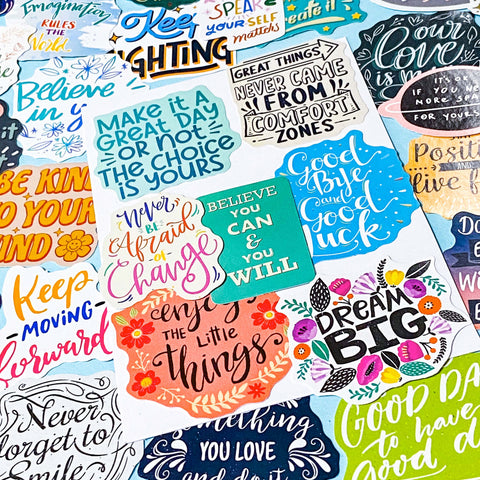 Imagination
RULES THE
World
Keep
FIGHTING
SPEAK
YOURSELF
matters
Create it
our
love
is
GREAT THINGS
NEVER CAME
FROM
COMFORT
ZONES
MAKE IT A
GREAT DAY
OR NOT
THE CHOICE
IS YOURS
Believe
in
IT'S OK
IF YOU NE
MORE SPA
FOR YOURS
Good
Bye
and
Good
Luck
Positi
AND
live f
BE KIND
TO YOUR
MIND
Never
BE
Afraid
of
Change
BELIEVE
YOU
CAN
& YOU
WILL
Keep
MOVING
forward
enjoy
THE LITTLE
things
DREAM
BIG
Never
forget to
Smile
something
YOU LOVE
and do it
GOOD DA
to have
Good d